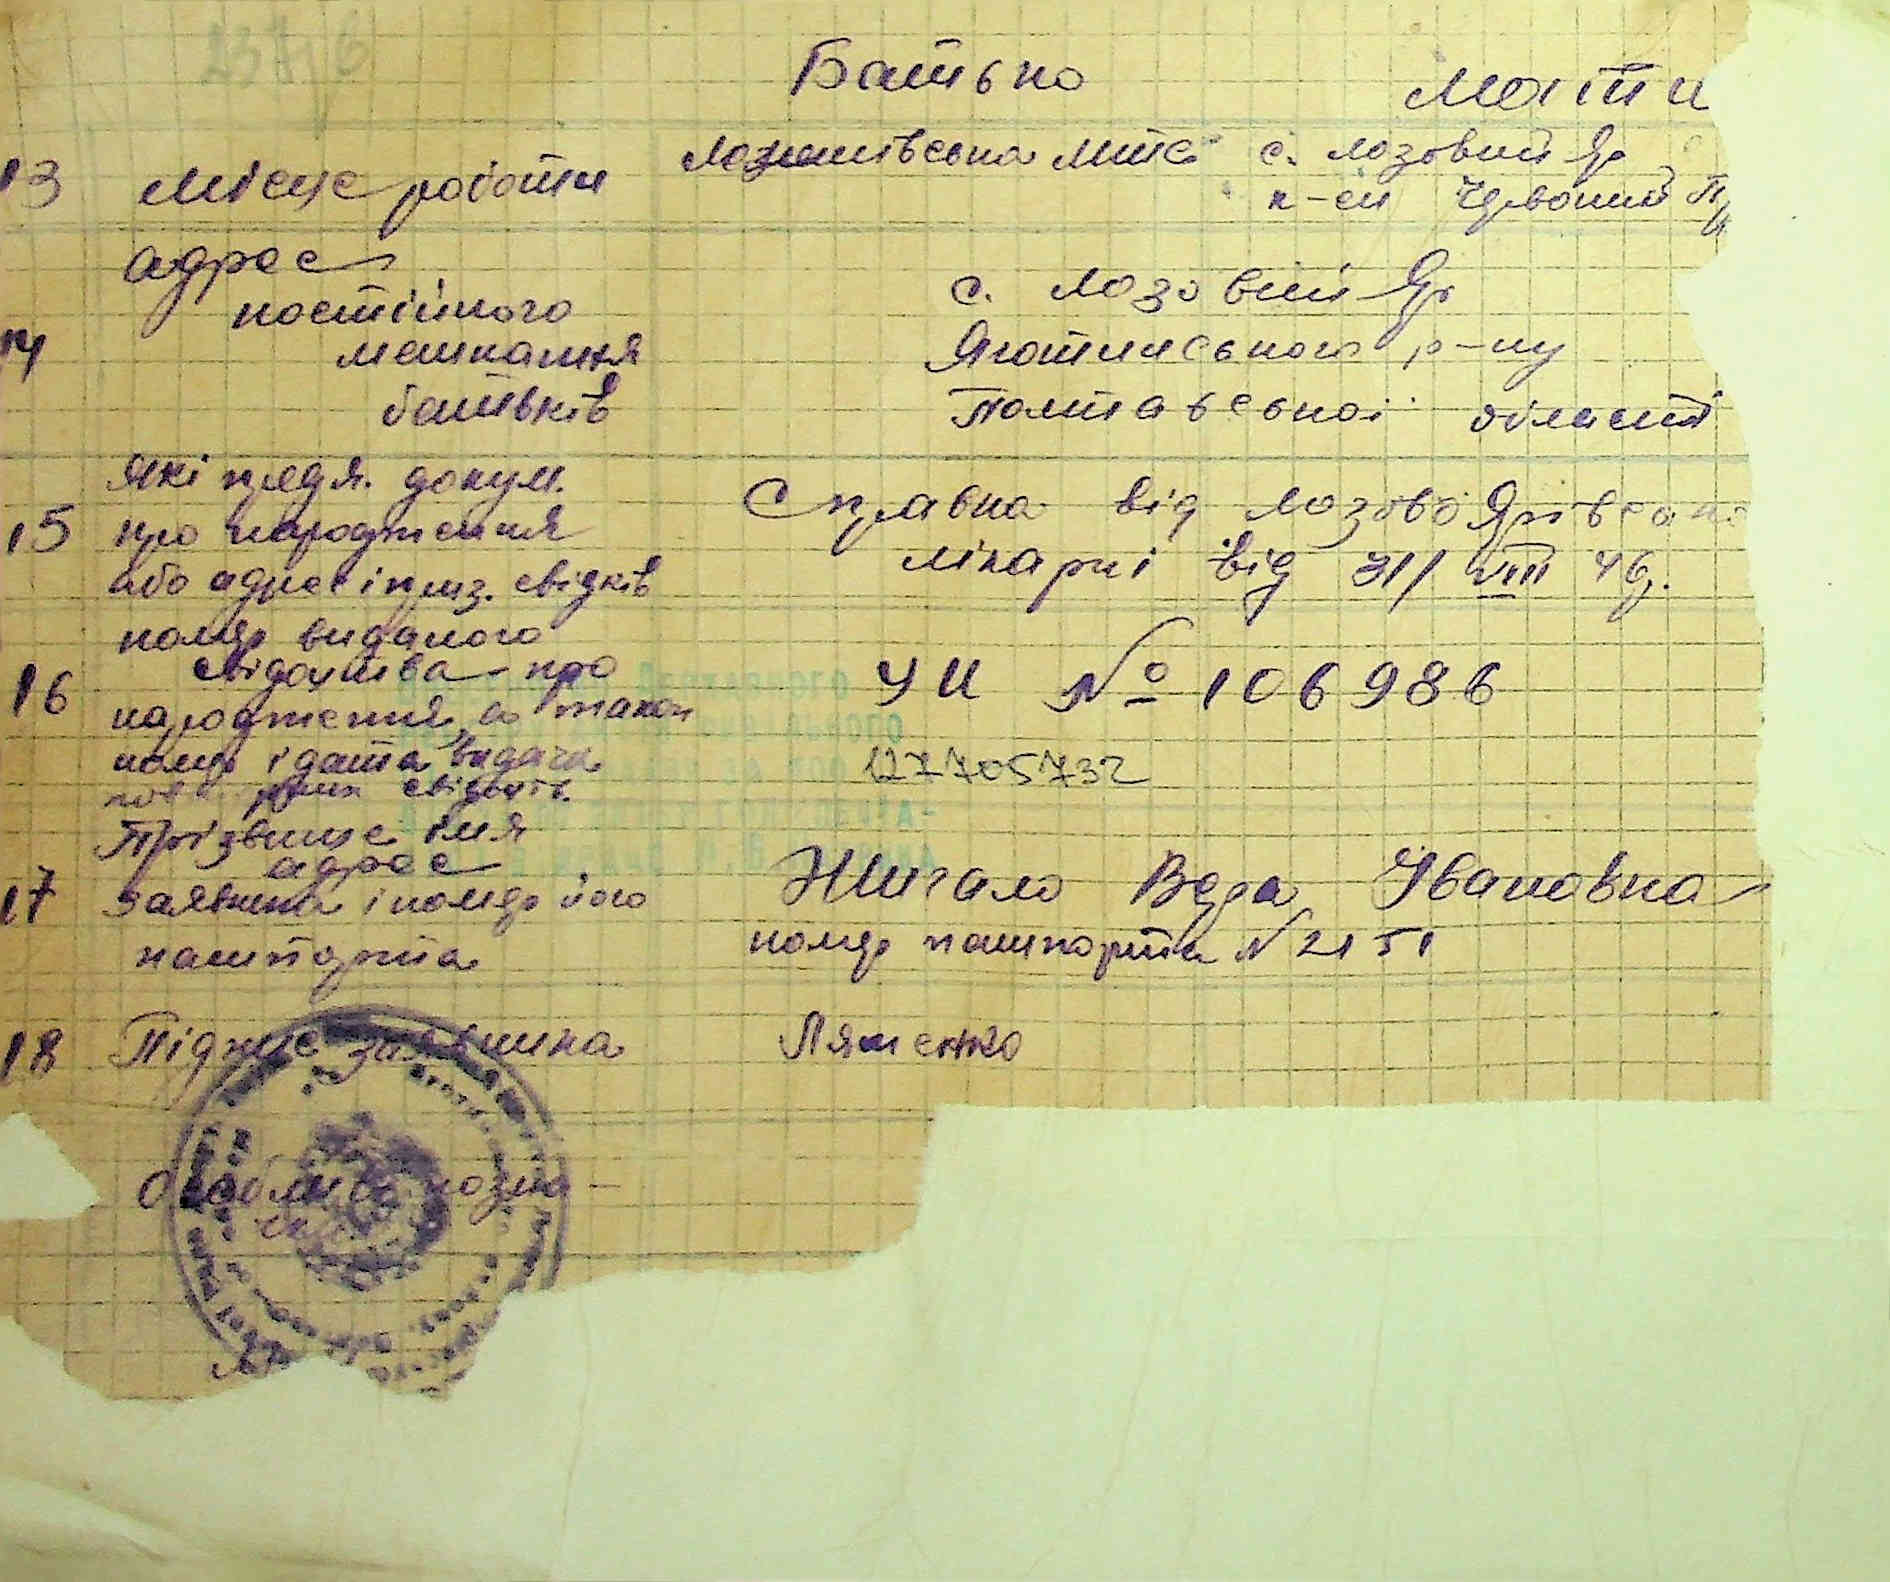 Батько Мати
13 Місце роботи МТС с. Лозовий Яр
к-сп Червоний
адрес
постійного с. Лозовий Яр
14 мешкання Яготинського р-ну
батьків Полтавської області
Які предя. докум.
15 про народження Справка від Лозово Ярівсько
або адрес і призв. свідків лікарні від 31/VIII 46р.
номер виданого
16 свідоцтва про УИ № 106986
народження, а також
номер і дата видачи 127705732
свідоцтв.
Прізвище імя
адрес
17 заявника і номер його Жигало Вера Ивановна
пашпорта номер пашпорта № 2151
18 Підпис заявника Ляшенко
Особливі позна-
чки